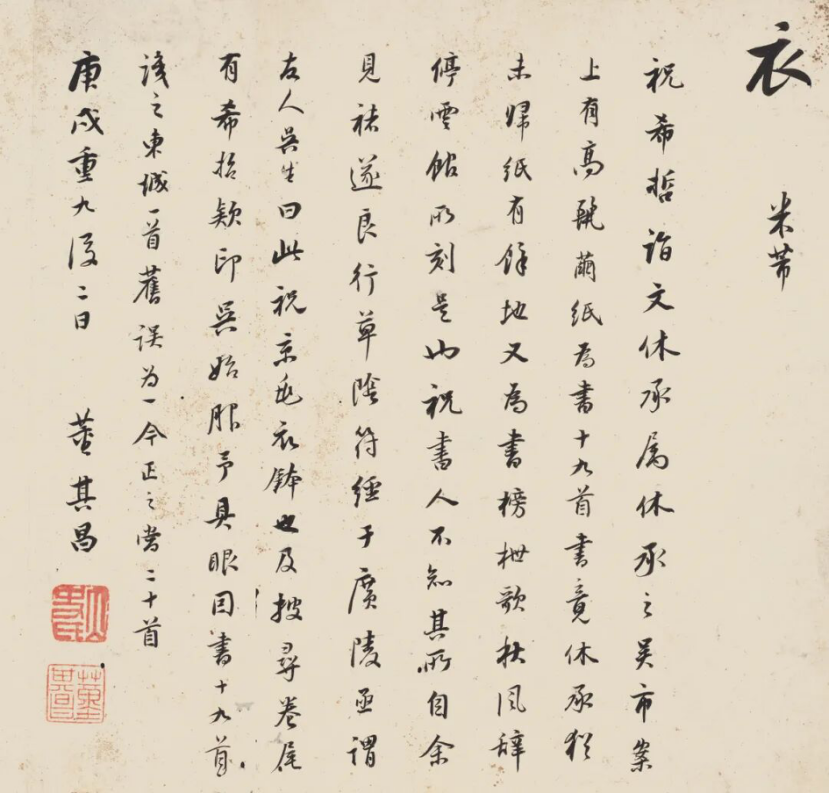 衣
米芾
祝希哲詣文休承属休承之吴市案
上有高麗繭紙為書十九首書竟休承猶
未歸紙有餘地又為書榜枻歌秋風辭
停雲館所刻是也祝書人不知其所自余
見褚遂良行草陰符經于廣陵亟謂
友人吳生曰此祝京兆衣鉢也及披尋卷尾
有希哲欵印吳始服予具眼因書十九首
識之東城一首舊誤为一今正之當二十首
庚戌重九後二日 董其昌